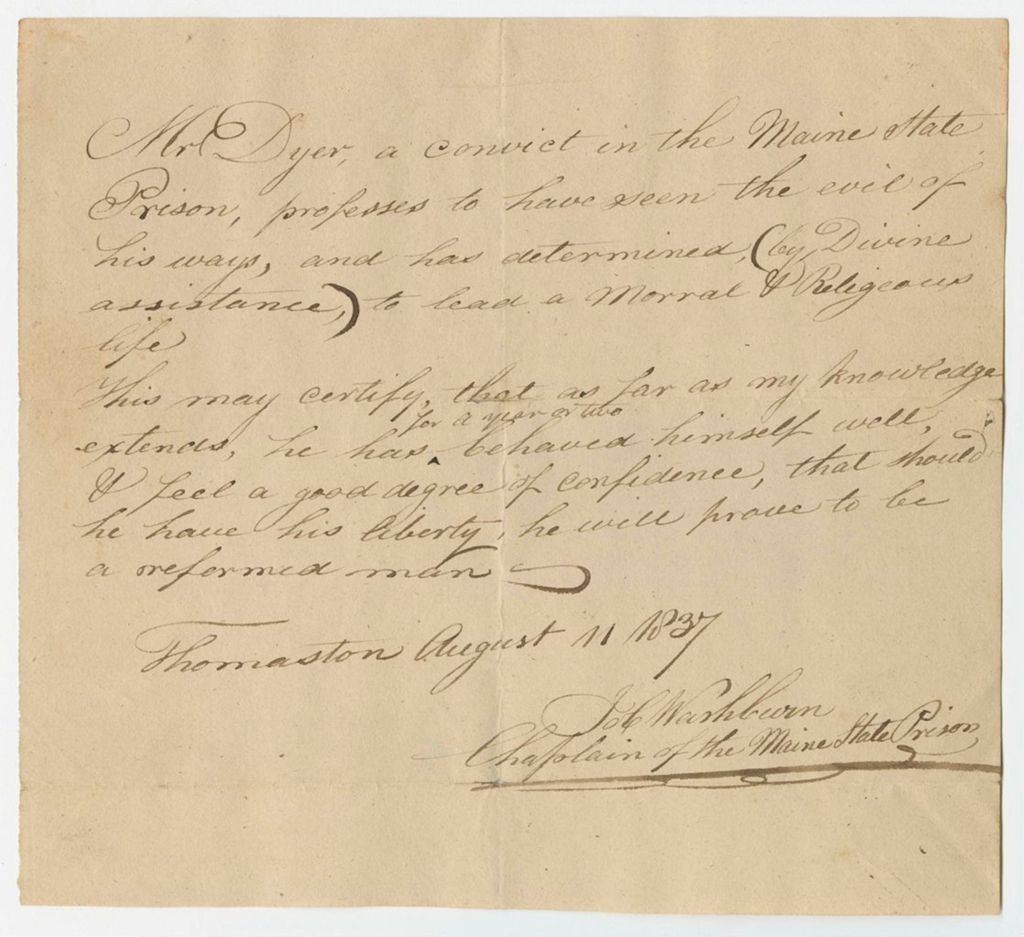 Mr Dyer, a convict in the Maine State
Prison, professes to have seen the evil of
his ways, and has determined, (by, Divine
assistance,) to lead a Morral & Religeous
life
This may certify, that as far as my knowledge
for a year or two
extends, he has ‸ behaved himself well,
& feel a good degree of confidence, that should
he have his liberty, he will prove to be
a reformed man
Thomaston August 11 1837
Job Washburn
Chaplain of the Maine State Prison